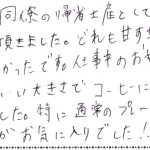 同僚の帰省土産として
頂きました。どれも甘すぎ
かったです。仕事のお
いい大きさで コーヒーに
した。特に 通常のプレー
がお気に入りでした!!